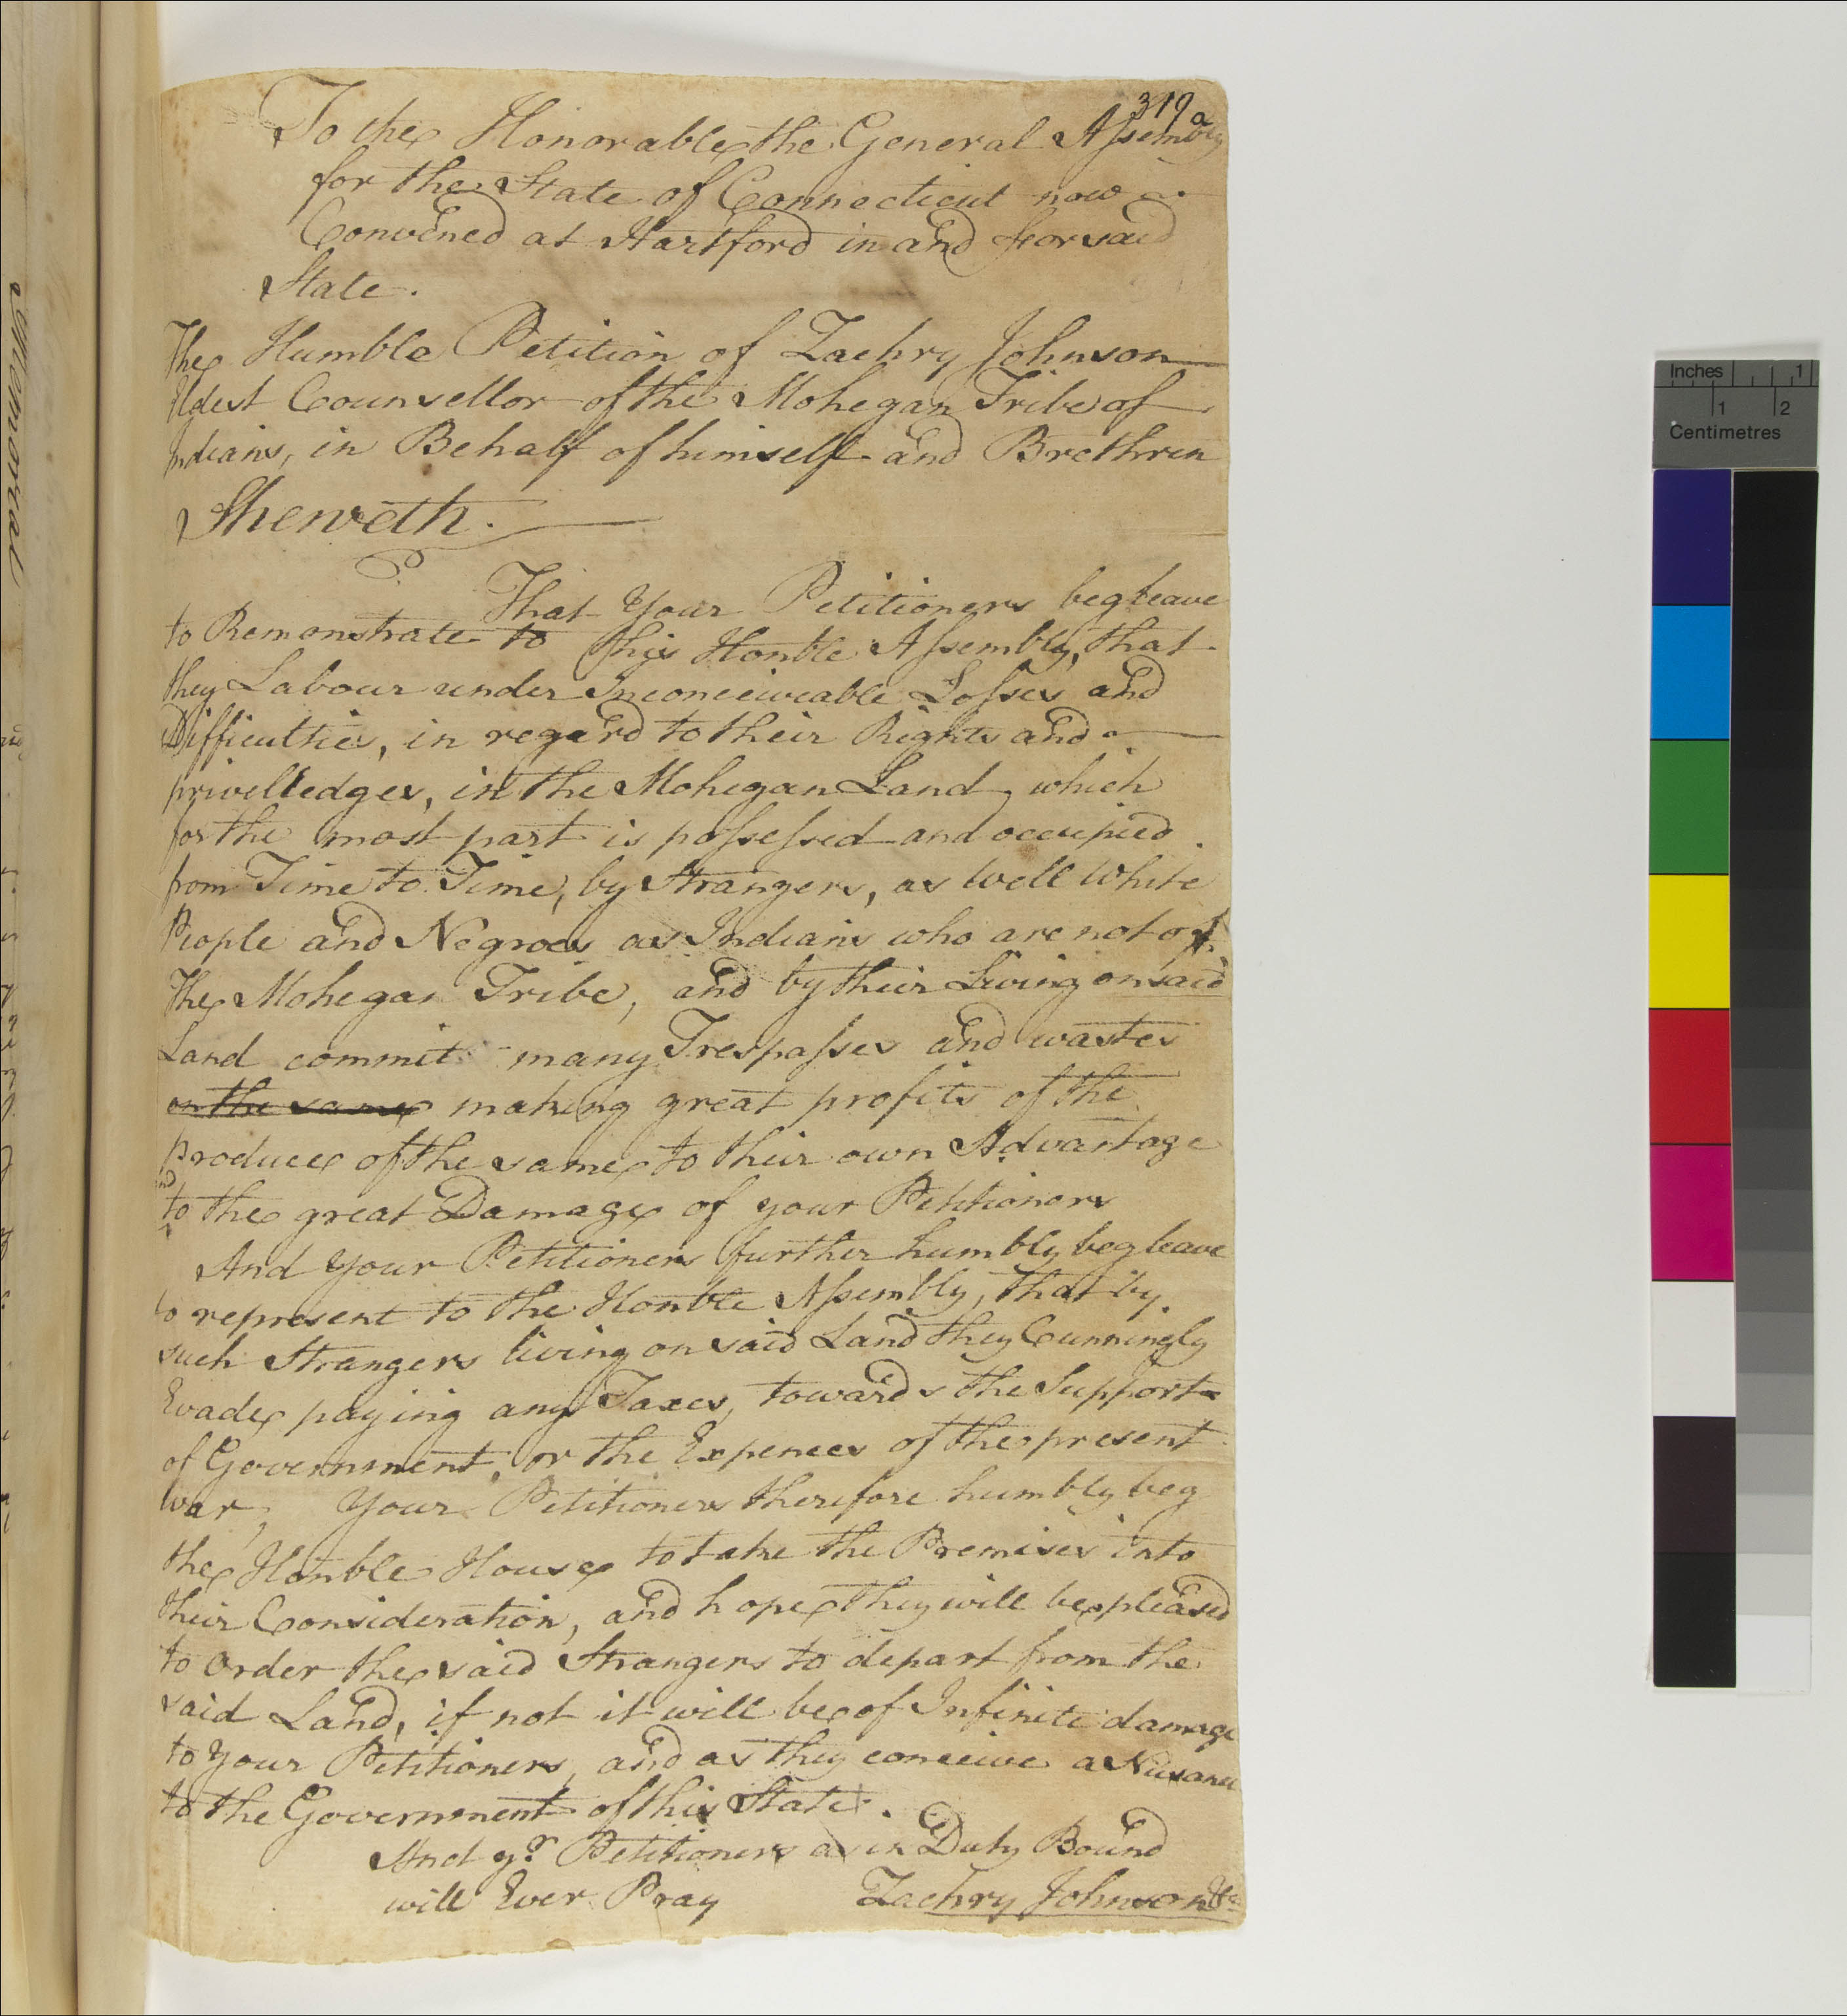 319a
To the Honorable the General Assembly
for the State of Connecticut now
Convened at Hartford in and for said
State.
The Humble Petition of Zachry Johnson
Eldest Counsellor of the Mohegan Tribe of
Indians, in Behalf of himself and Brethren
Sheweth.
That Your Petitioners beg leave
to Remonstrate to this Honble Assembly, that
they Labour under Inconceiveable Losses and
Difficulties, in regard to their Rights and
privelledges, in the Mohegan Land, which
for the most part is possessed and occupied
from Time to Time, by Strangers, as well White
People and Negroes as Indians who are not of
the Mohegan Tribe, and by their Living on said
Land commit many Trespasses and wastes
on the same making great profits of the
produce of the same to their own Advantage
and
to the great Damage of your Petitioners
And Your Petitioners further humbly beg leave
to represent to the Honble Assembly, that by
such Strangers living on said Land they Cunningly
Evade paying any Taxes, towards the Support
of Government, or the Expences of the present
War, Your Petitioners therefore humbly beg
the Honble House to take the Premises into
their Consideration, and hope they will be pleased
to Order the said Strangers to depart from the
said Land, if not it will be of Infinite damage
to Your Petitioners, and as they conceive a Niusance
to the Government of this State.
And yr Petitioners as in Duty Bound
will Ever Pray Zachry Johnson &c
Memorial
Inches 1
1 2
Centimetres